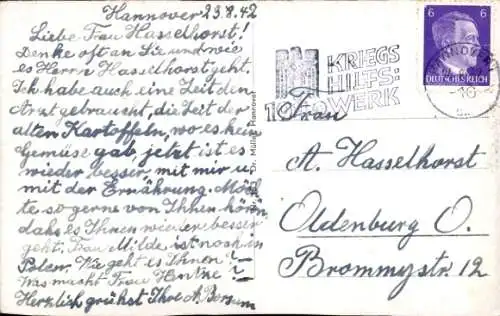 Hannover 23.8.42
Liebe Frau Hasselhorst!
Denke oft an Sie und wie
es Herrn Hasselhorst geht.
Ich habe auch eine Zeit den
Arzt gebraucht, die Zeit der
alten Kartoffeln, wo es kein
Gemüse gab, jetzt ist es
wieder besser, mit mir u.
mit der Ernährung. Möch
te so gerne von Ihnen hören
daß es Ihnen wieder besser
geht. Frau Milde ist noch in
Polen. Wie geht es Ihnen?
Was macht Frau
Herzlich grüßt Ihre A.
Dr. Müller, Hannover
KRIEGS
HILFS-
WERK
6 6
DEUTSCHES REICH
Frau
A. Hasselhorst
Oldenburg O.
Brommystr. 12